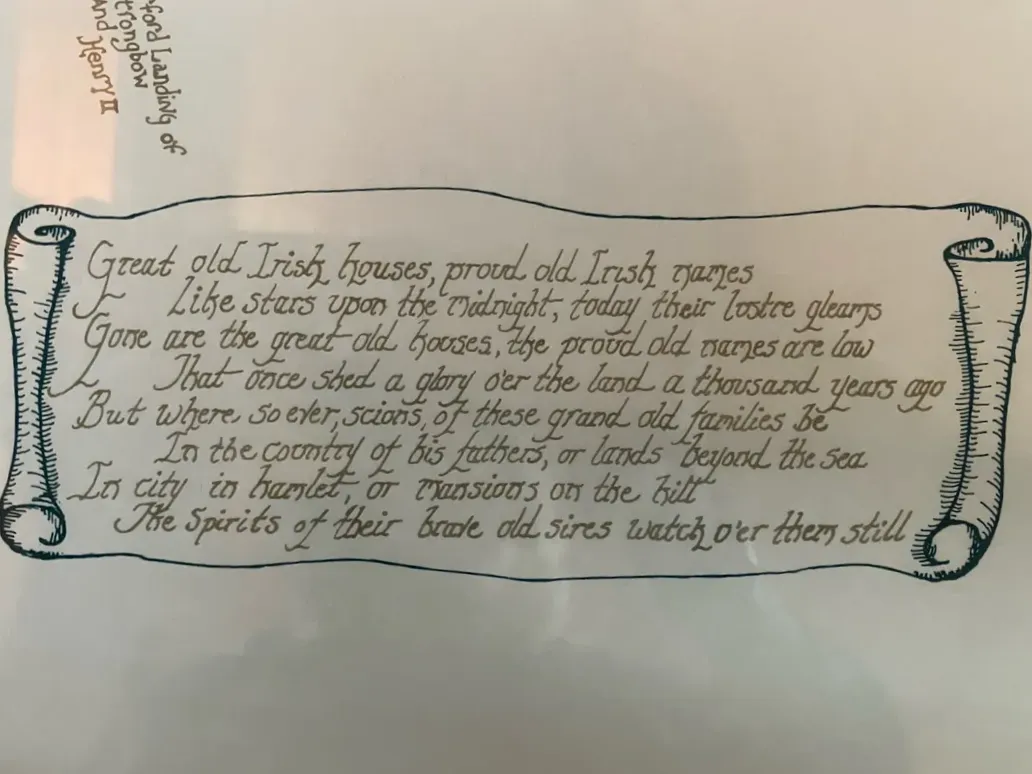 ford Landing of
Strongbow
And Henry II
Great old Irish houses, proud old Irish names
Like stars upon the midnight, today their lustre gleams
Gone are the great old houses, the proud old names are low
That once shed a glory o'er the land a thousand years ago
But where, so ever, scions, of these grand old families be
In the country of his fathers, or lands beyond the sea
In city in hamlet, or mansions on the hill
The Spirits of their brave old sires watch o'er them still